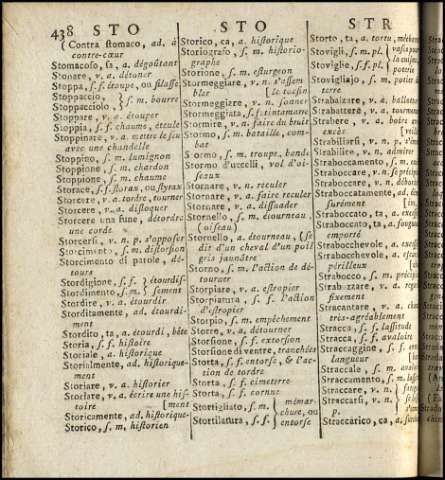 438 STO
STO
STR
(Contra stomaco, ad. à
contre-cœur
Stomacoso, sa, a. dégoûtant
Stonare, v. a. détoner
Stoppa, s. f. étoupe, ou filasse
Stoppaccio,
Stoppacciolo, } s. m. bourre
Stoppare, v. a. étouper
Stoppia, s. f. chaume, éteule
Stoppinare, v. a. mettre le feu
avec une chandelle
Stoppino, s. m. lumignon
Stoppione, s. m. chardon
Stoppione, s. m. chaume
Storace, s. f. storax, ou styrax
Storcere, v. a. tordre, tourner
Storcere, v. a. disloquer
Storcere una fune, détordre
une corde
Storcersi, v. n. p. s'opposer
Storcimento, s. m. distorsion
Storcimento di parole, dé-
tours
Stordigione, s. f. } étourdis-
Stordimento, s. m. } sement
Stordire, v. a. étourdir
Storditamente, ad. étourdi-
ment
Stordito, ta, a. étourdi, bête
Storia, s. f. histoire
Storiale, a. historique
Storialmente, ad. historique-
ment
Storiare, v. a. historier
Storiare, v. a. écrire une his-
toire [ment
Storicamente, ad. historique-
Storico, s. m. historien
Storico, ca, a. historique
Storiografo, s. m. historio-
graphe
Storione, s. m. esturgeon
Stormeggiare, v. n. s'assem
bler [le tocsin
Stormeggiare, v. n. sonner
Stormeggiata, s. f. tintamarre
Stormire, v. n. faire du bruit
Stormo, s. m. bataille, com-
bat
Stormo, s. m. troupe, bande
Stormo d'uccelli, vol d'oi-
seaux
Stornare, v. n. reculer
Stornare, v. a. faire reculer
Stornare, v. a. dissuader
Stornello, s. m. étourneau
(oiseau)
Stornello, a. étourneau, (se
dit d'un cheval d'un poil
gris jaunâtre
Storno, s. m. l'action de dé-
tourner
Storpiare, v. a. estropier
Storpiatura, s. f. l'action
d'estropier
Storpio, s. m. empêchement
Storre, v. a. détourner
Storsione, s. f. extorsion
Storsione di ventre, tranchées
Storta, s. f. entorse, & l'ac-
tion de tordre
Storta, s. f. cimeterre
Storta, s. f. cornue
Stortigliato, s. m. } mémar-
chure, ou
Stortilatura, s. f. } entorse
Storto, ta, a. tortu, méchant
Stovigli, s. m. pl.
Stoviglie, s. f. pl.
poterie
Stovigliajo, s. m.
terre
Strabalzare, v. a.
Strabattere, v. a.
Strabere, v. a. boire
excès
Strabiliarsi, v. n. p.
Strabilire, v. n.
Straboccamento, s. m.
Straboccare, v. n.
Straboccare, v. n.
Straboccatamente, ad.
surément
Straboccato, ta, a.
Straboccato, ta, a.
emporté
Strabocchevole, a.
Strabocchevole, a.
périlleux
Strabocco, s. m.
v. a.
fixement
Stracantare, v. a.
très-agréablement
Stracca, s. f. lassitude
Stracca, s. f. avaloire
Straccaggine, s. f.
langueur
Straccale, s. m.
Straccamento, s. m.
Straccare, v. n.
Straccarsi, v. n.
p.
Straccarico, ca, a.